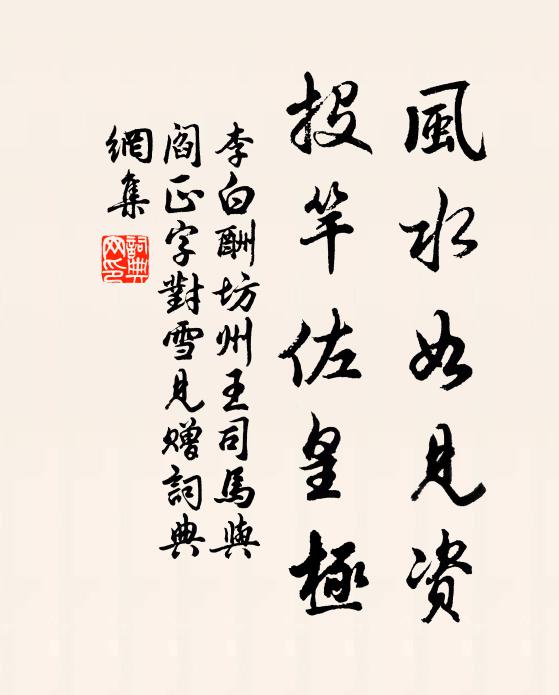 風水如見资
投竿佐皇極
李白酬坊州王司馬與
閻正字對雪見贈詞典
網集
詞典
网印